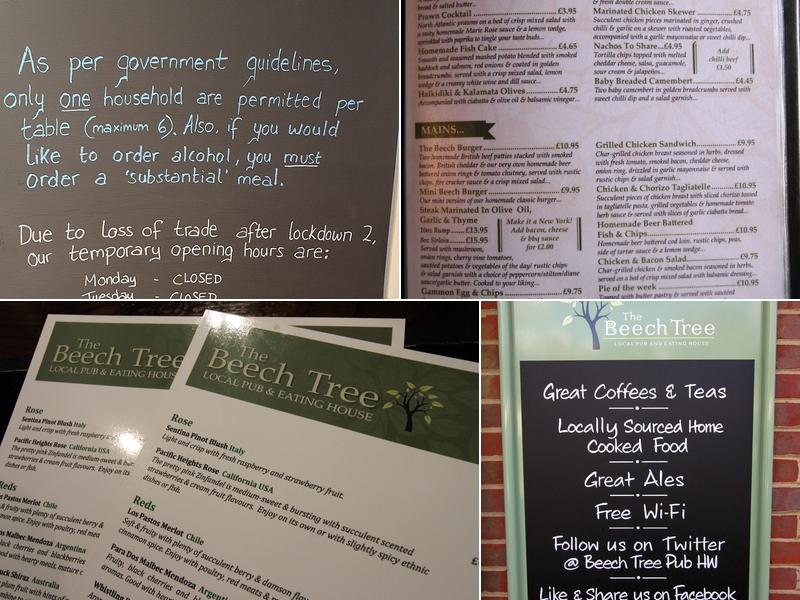 As per government guidelines,
only one household are permitted per
table (maximum 6). Also, if you would
like to order alcohol, you must
order a 'substantial' meal.
Due to loss of trade after lockdown 2,
our temporary opening hours are:
Monday - CLOSED
Tuesday - CLOSED
bread & salted butter...
Prawn Cocktail £3.95
North Atlantic prawns on a bed of crisp mixed salad with
a tasty homemade Marie Rose sauce & a lemon wedge,
sprinkled with paprika to tingle your taste buds...
Homemade Fish Cake £4.65
Smooth and seasoned mashed potato blended with smoked
haddock and salmon, red onions & coated in golden
breadcrumbs, served with a crisp mixed salad, lemon
wedge & a creamy white wine and dill sauce...
Halkidiki & Kalamata Olives £4.75
Accompanied with ciabatta & olive oil & balsamic vinegar...
& fresh double cream sauce...
Marinated Chicken Skewer £4.75
Succulent chicken pieces marinated in ginger, crushed
chilli & garlic on a skewer with roasted vegetables,
accompanied with a garlic mayonnaise or sweet chilli dip...
Nachos To Share...£4.95
Tortilla chips topped with melted
cheddar cheese, salsa, guacamole,
sour cream & jalapeños...
Add
chilli beef
£1.50
Baby Breaded Camembert £4.45
Two baby camembert in golden breadcrumbs served with
sweet chilli dip and a salad garnish...
MAINS...
The Beech Burger £10.95
Two homemade British beef patties stacked with smoked
bacon, British cheddar & our very own homemade beer
battered onion rings & tomato chutney, served with rustic
chips, fire cracker sauce & a crisp mixed salad...
Mini Beech Burger £9.95
Our mini version of our homemade classic burger...
Steak Marinated In Olive Oil,
Garlic & Thyme
10oz. Rump £13.95
8oz. Sirloin £15.95
Make it a New York!
Add bacon, cheese
& bbq sauce
for £2.00
Served with mushroom,
onion rings, cherry vine tomatoes,
sautéed potatoes & vegetables of the day/ rustic chips
& salad garnish with a choice of peppercorn/stilton/diane
sauce/garlic butter. Cooked to your liking...
Gammon Egg & Chips £9.75
Grilled Chicken Sandwich £9.95
Char-grilled chicken breast seasoned in herbs, dressed
with fresh tomato, smoked bacon, cheddar cheese,
onion ring, drizzled in garlic mayonnaise & served with
rustic chips & salad garnish...
Chicken & Chorizo Tagliatelle £10.95
Succulent pieces of chicken breast with sliced chorizo tossed
in tagliatelle pasta, grilled vegetables & homemade tomato
herb sauce & served with slices of garlic ciabatta bread...
Homemade Beer Battered
Fish & Chips £10.95
Homemade beer battered cod loin, rustic chips, peas,
side of tartar sauce & a lemon wedge...
Chicken & Bacon Salad £9.75
Char-grilled chicken & smoked bacon seasoned in herbs,
served on a bed of crisp mixed salad with balsamic dressing...
Pie of the week £10.95
Topped with butter pastry & served with sautéed
The
Beech Tree
LOCAL PUB & EATING HOUSE
Rose
Sentina Pinot Blush Italy
Light and crisp with fresh raspberry
Pacific Heights Rose California USA
The pretty pink Zinfandel is medium-sweet & bur
strawberries & cream fruit flavours. Enjoy on its
dishes or fish.
Reds
Los Pastos Merlot Chile
fruity with plenty of succulent berry &
spice. Enjoy with poultry, red mea
Malbec Mendoza Argentina
black cherries and blackberries
Good with hearty meals, mature c
Shiraz Australia
The
Beech Tree
LOCAL PUB & EATING HOUSE
Rose
Sentina Pinot Blush Italy
Light and crisp with fresh raspberry and strawberry fruit.
Pacific Heights Rose California USA
The pretty pink Zinfandel is medium-sweet & bursting with succulent scented
strawberries & cream fruit flavours. Enjoy on its own or with slightly spicy ethnic
dishes or fish.
Reds
Los Pastos Merlot Chile
Soft & fruity with plenty of succulent berry & damson flav
cinnamon spice. Enjoy with poultry, red meats &
Para Dos Malbec Mendoza Argentina
Fruity, black cherries and
aromas. Good with hearty meals,
Whistling
The
Beech Tree
LOCAL PUB AND EATING HOUSE
Great Coffees & Teas
Locally Sourced Home
Cooked Food
Great Ales
Free Wi-Fi
Follow us on Twitter
@ Beech Tree Pub HW
Like & Share us on Facebook